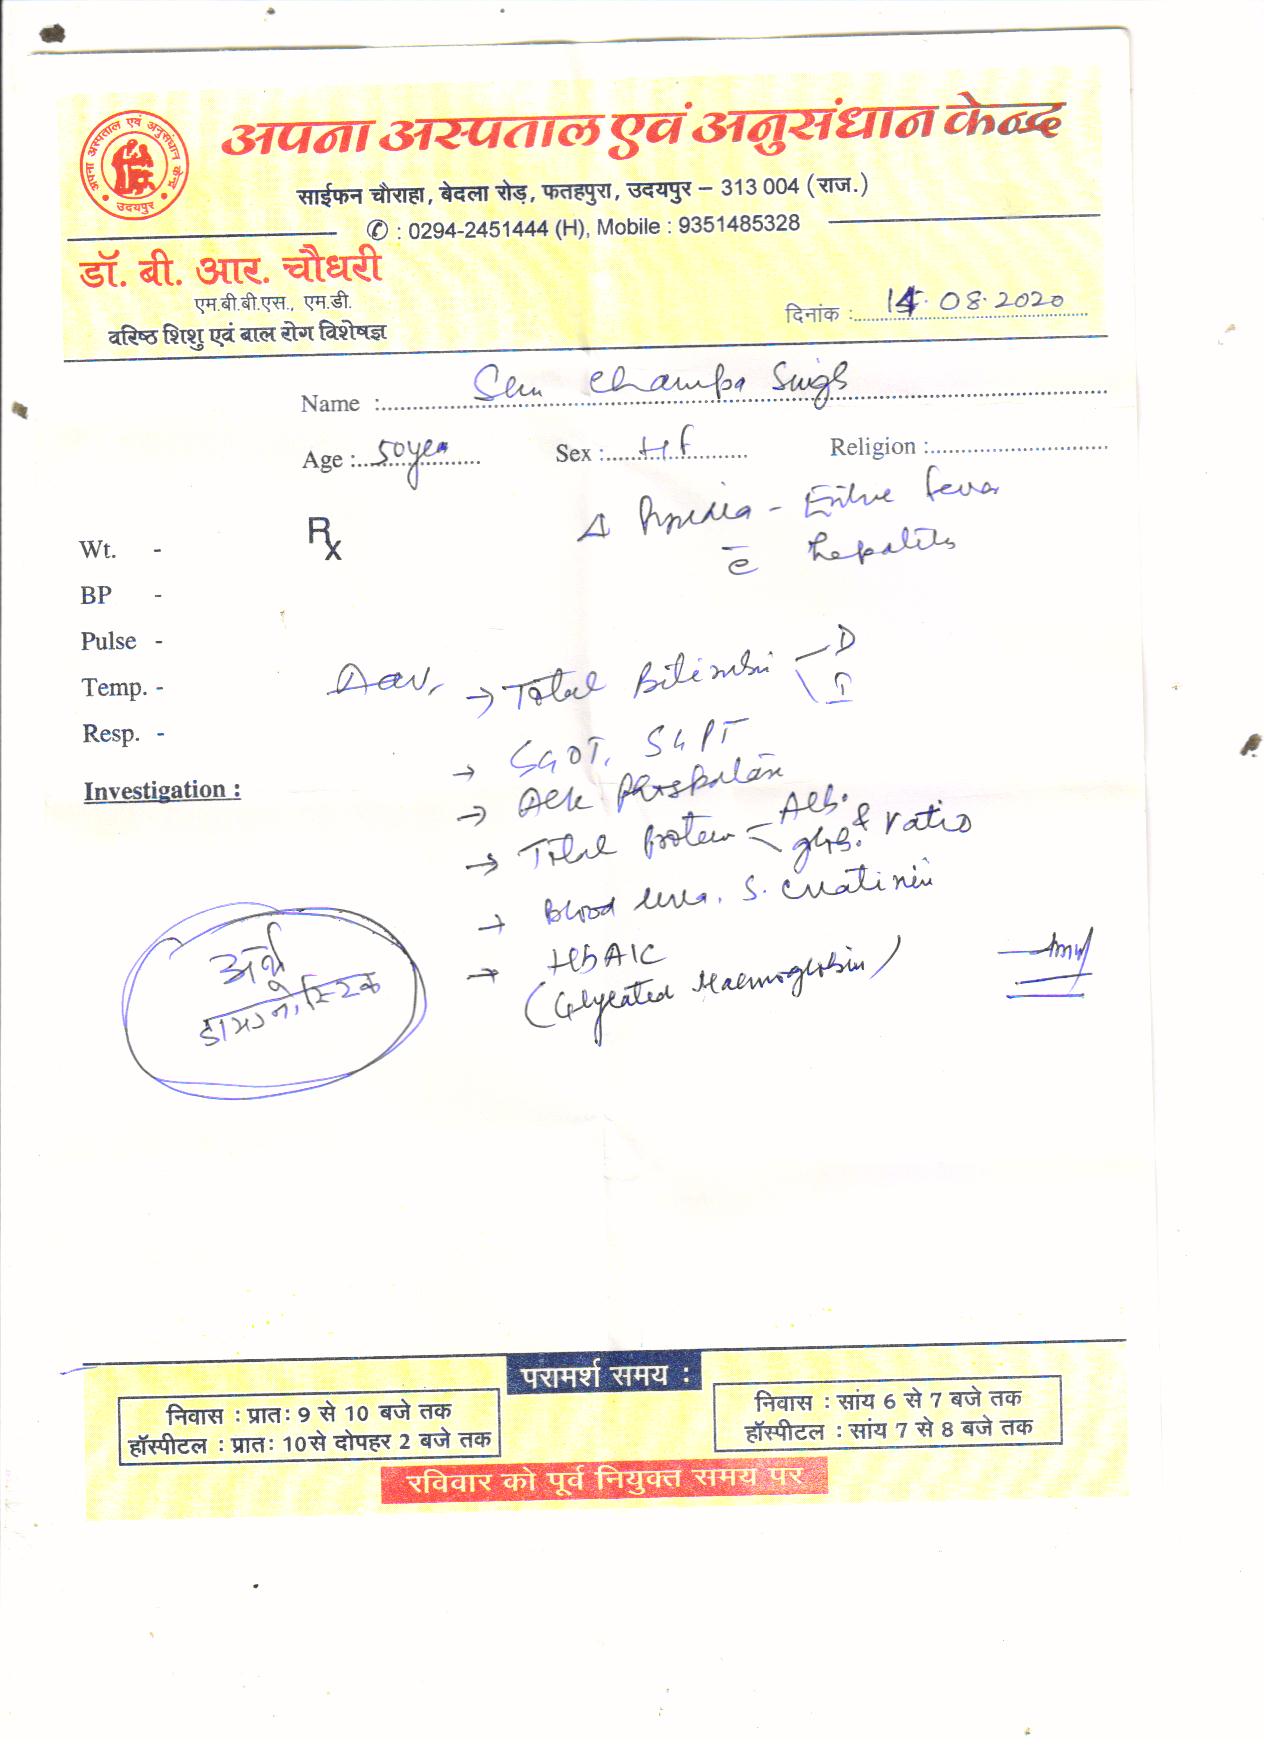 अपना अस्पताल एवं अनुसंधान केन्द्र
अपना अस्पताल एवं अनुसंधान केन्द्र
उदयपुर
साईफन चौराहा, बेदला रोड़, फतहपुरा, उदयपुर – 313 004 (राज.)
✆ : 0294-2451444 (H), Mobile : 9351485328
डॉ. बी. आर. चौधरी
एम.बी.बी.एस., एम.डी.
वरिष्ठ शिशु एवं बाल रोग विशेषज्ञ
दिनांक : 14.08.2020
Name : Champa Singh
Age : 50 year Sex : F Religion :
Rx
Δ - Enteric fever
c̄ hepatitis
Wt. -
BP -
Pulse -
Temp. -
Resp. -
Investigation :
Adv,
→ Total Bilirubin D I
→ SGOT, SGPT
→ Alk Phosphatase
→ Total protein Alb. glob. & ratio
→ Blood urea, S. creatinin
→ HbA1C
(Glycated Haemoglobin)
अर्थ
डायग्नोस्टिक
परामर्श समय :
निवास : प्रातः 9 से 10 बजे तक
हॉस्पीटल : प्रातः 10 से दोपहर 2 बजे तक
निवास : सांय 6 से 7 बजे तक
हॉस्पीटल : सांय 7 से 8 बजे तक
रविवार को पूर्व नियुक्त समय पर